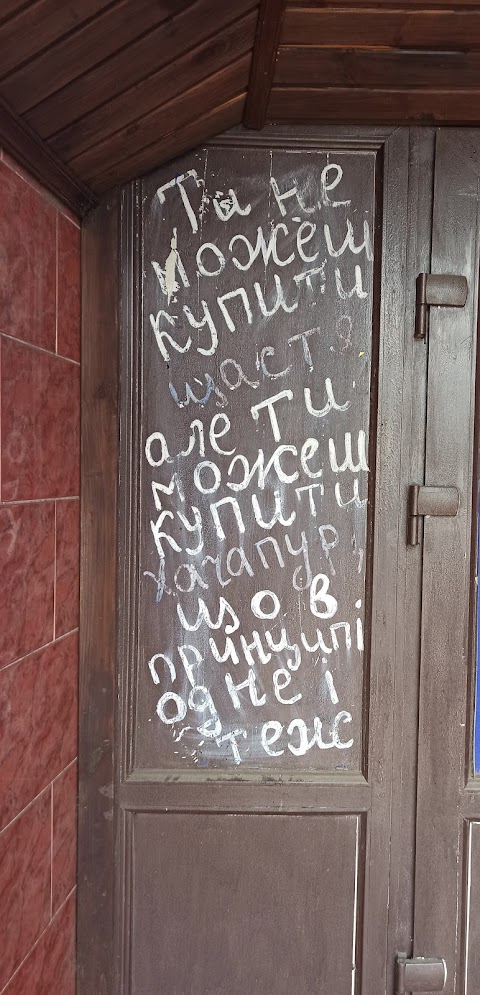 Ти не
можеш
купити
щастя
але ти
можеш
купити
хачапурі,
що в
принципі
одне і
теж